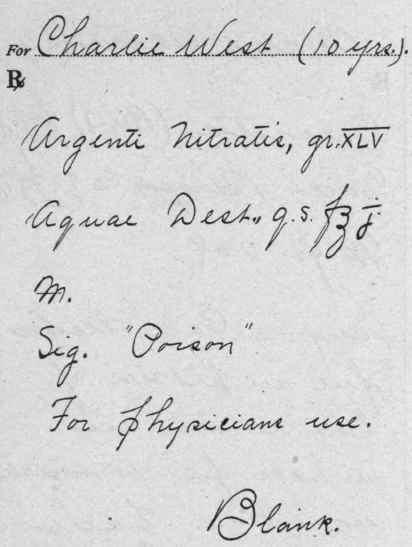 For Charlie West (10 yrs.).
℞
Argenti Nitratis, gr. XLV
Aquae Dest., q.s. f℥ j
M.
Sig. "Poison"
For physicians use.
Blank.